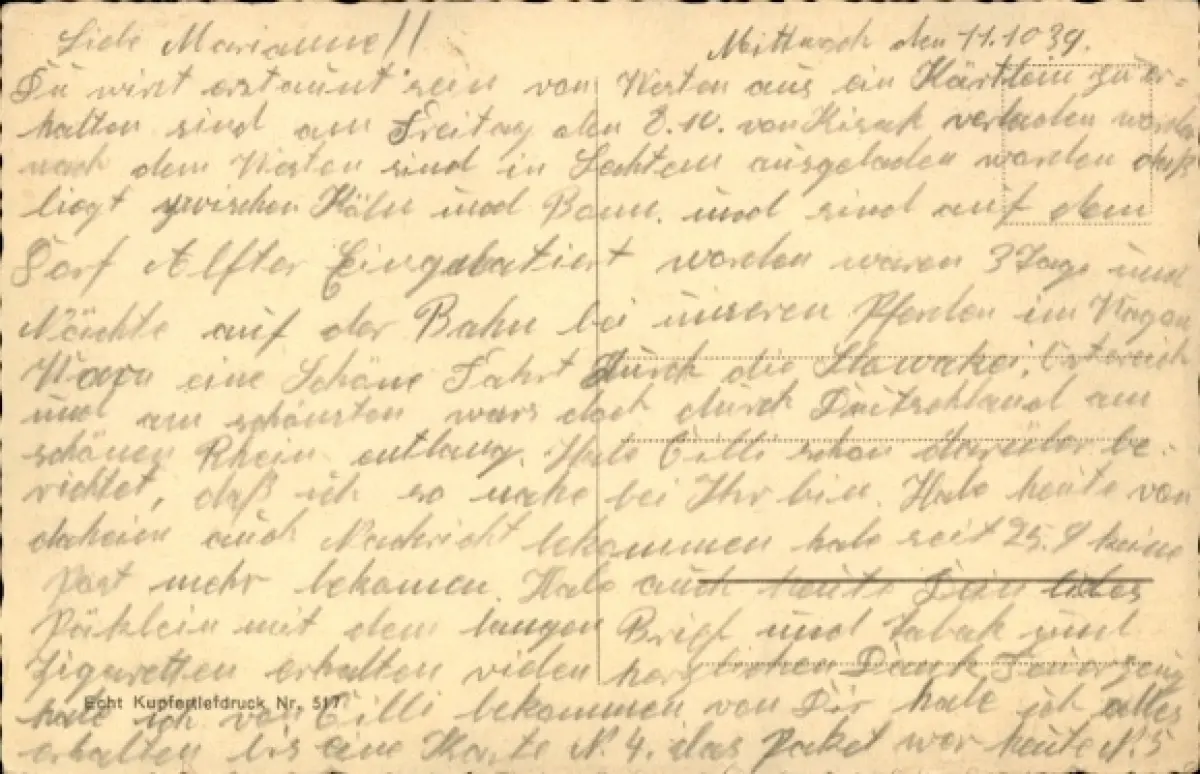 Liebe Marianne!!
Mittwoch den 11.10 39.
Du wirst erstaunt sein von Westen aus ein Kärtlein zu er-
halten sind am Freitag den 8.10. von Kisak verladen worden
nach dem Westen sind in Sechtem ausgeladen worden daß
liegt zwischen Köln und Bonn. und sind auf dem
Dorf Alfter Einquatiert worden waren 3 Tage und
Nächte auf der Bahn bei unseren Pferden im Wagen
Warn eine Schöne Fahrt durch die Slowakei, Östereich
und am schönsten wars doch durch Deutschland am
schönen Rhein entlang. Habe Cilli schon darüber be-
richtet, daß ich so nahe bei Ihr bin. Habe heute von
daheim auch Nachricht bekommen habe seit 25.9 keine
Post mehr bekomen. Habe auch heute Dein liebes
Päklein mit dem langen Brief und Tabak und
Zigaretten erhalten vielen herzlichen Dank Feuerzeug
Echt Kupfertiefdruck Nr. 517
habe ich von Cilli bekommen von Dir habe ich alles
erhalten bis eine Karte N. 4. das Paket war heute N. 5